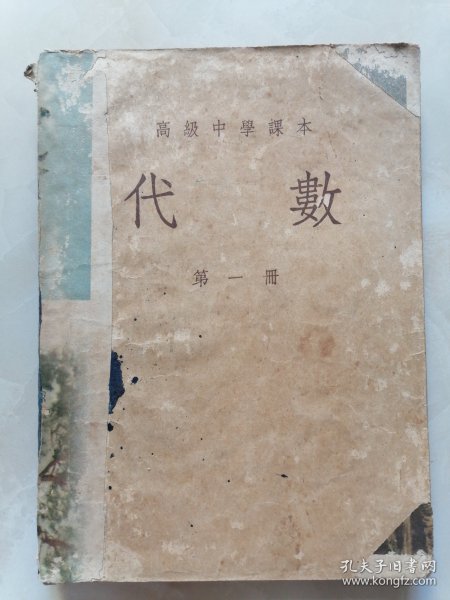 高級中學課本
代數
第一冊
孔夫子旧书网
www.kongfz.com